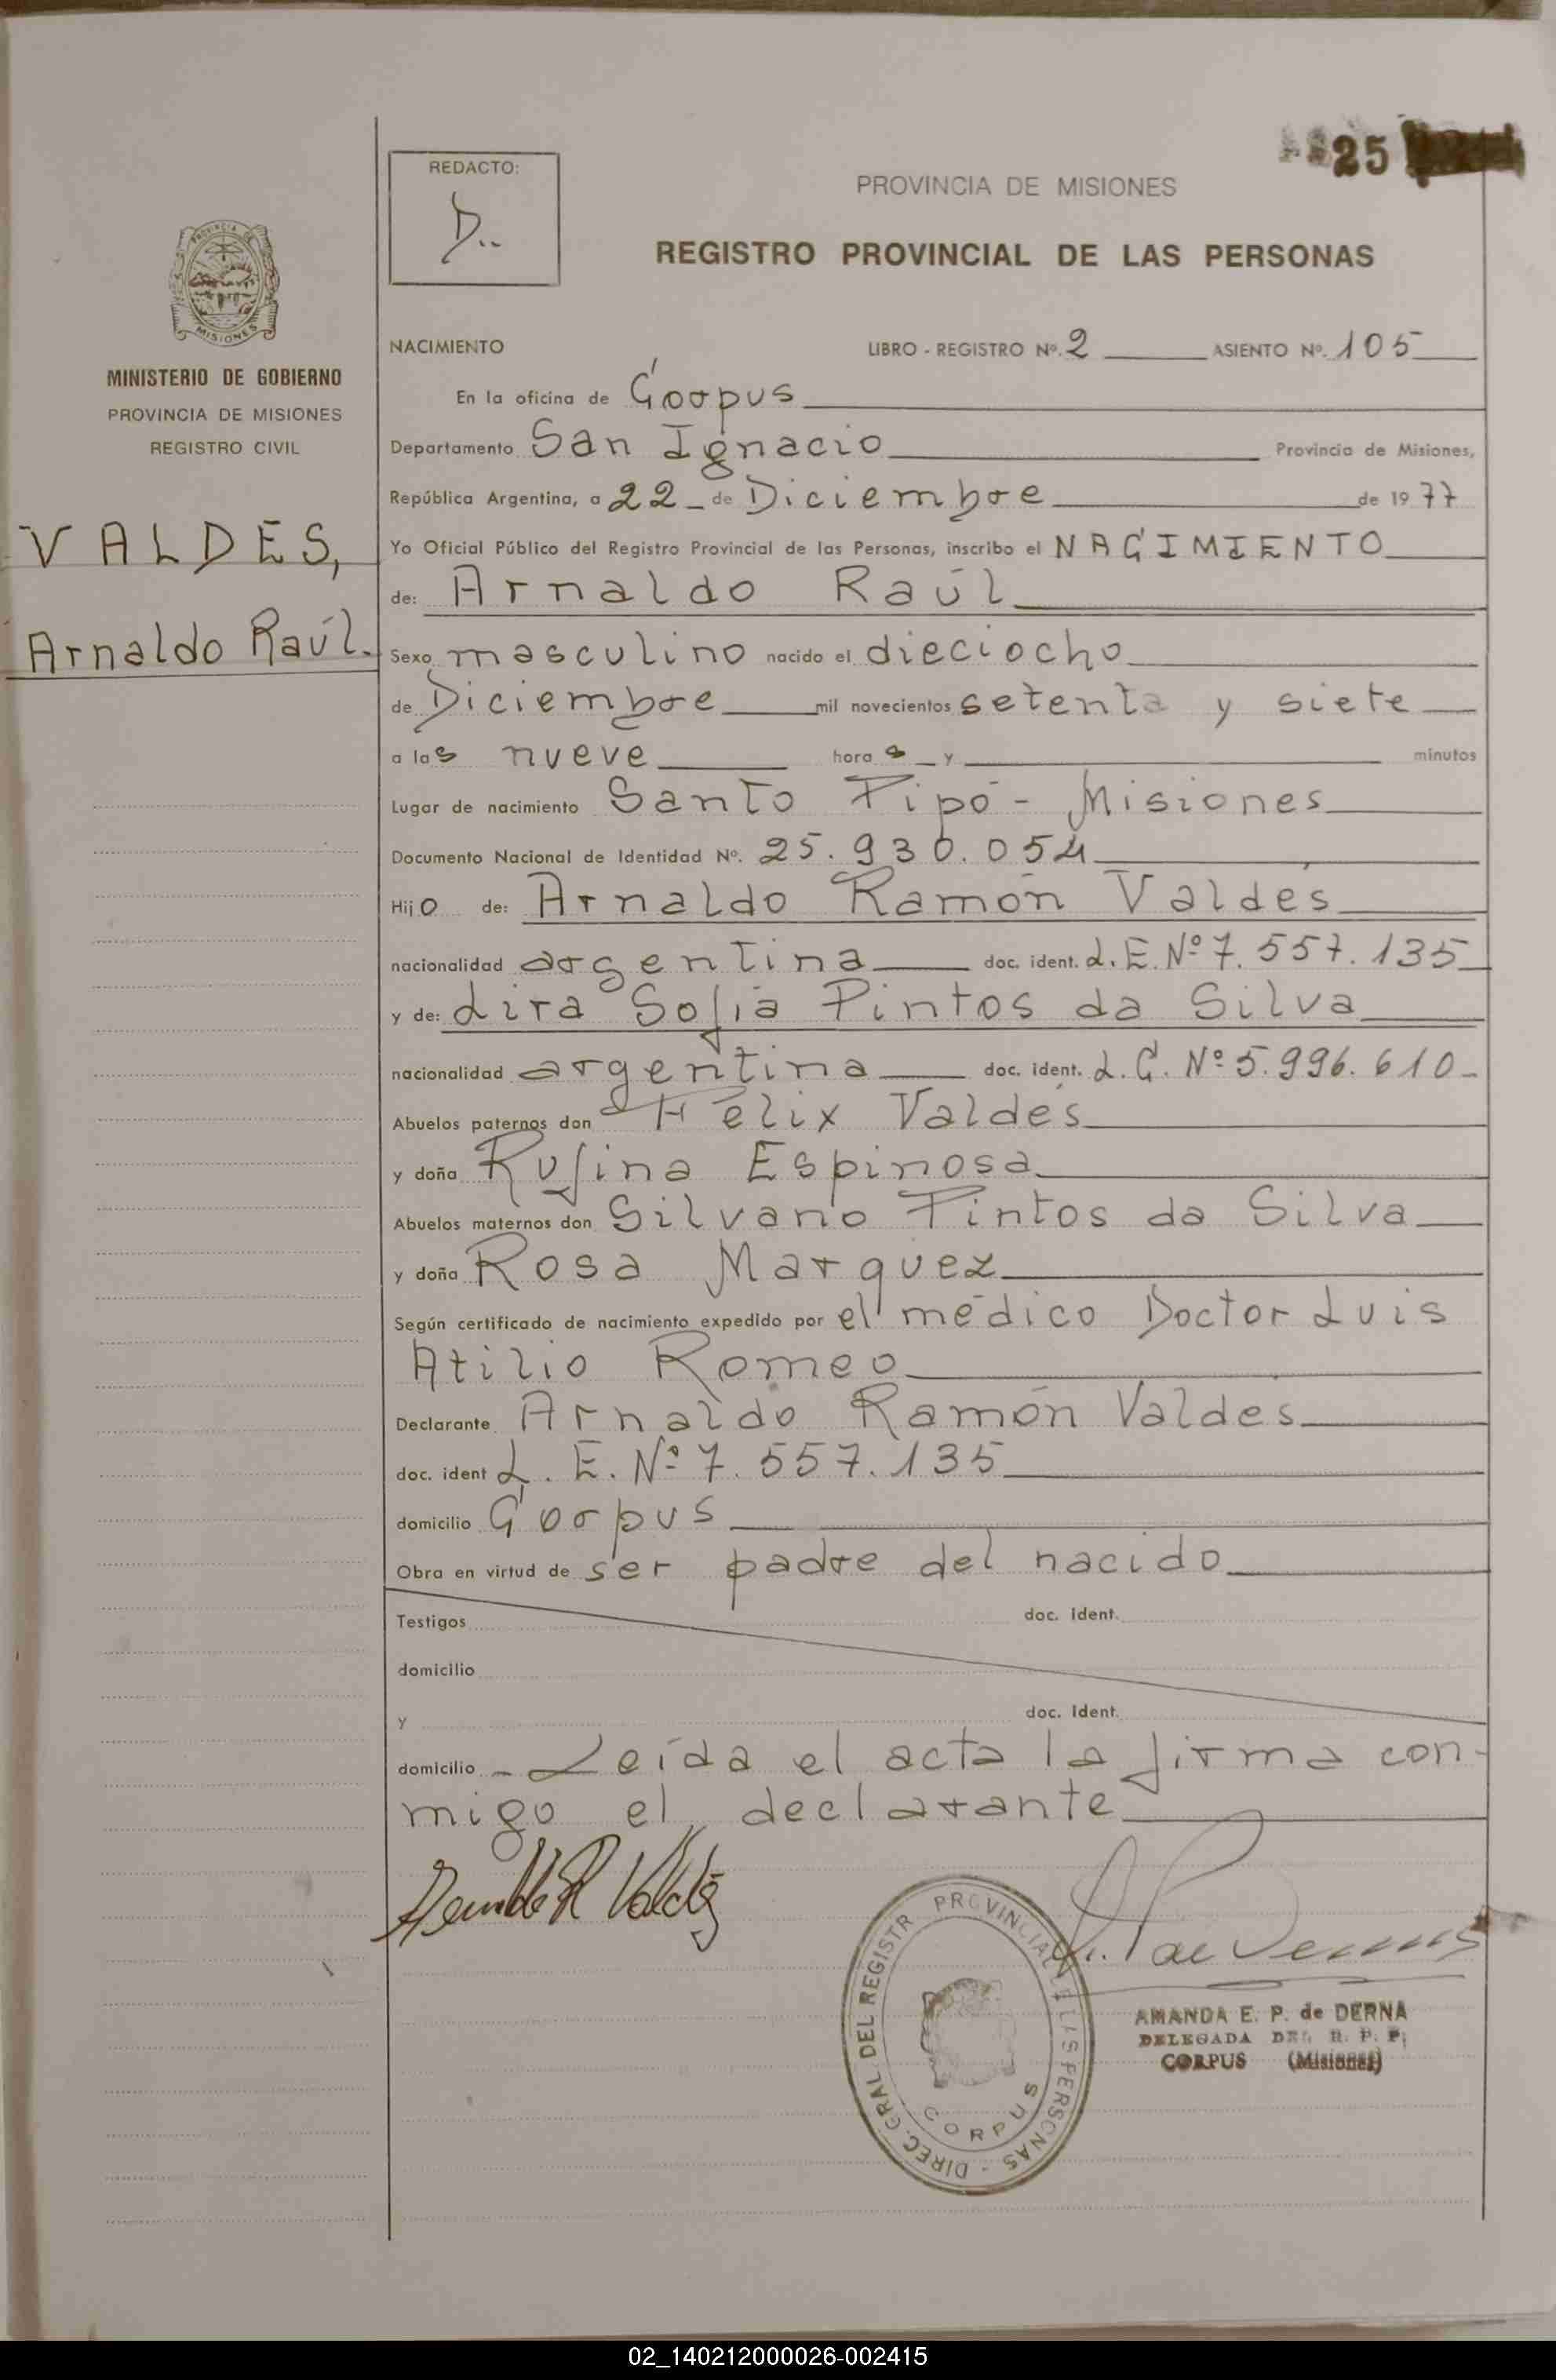 25
REDACTO:
D..
PROVINCIA DE MISIONES
REGISTRO PROVINCIAL DE LAS PERSONAS
PROVINCIA DE
MISIONES
MINISTERIO DE GOBIERNO
PROVINCIA DE MISIONES
REGISTRO CIVIL
VALDES,
Arnaldo Raúl.
NACIMIENTO LIBRO - REGISTRO Nº. 2 ASIENTO Nº. 105
En la oficina de Corpus
Departamento San Ignacio Provincia de Misiones,
República Argentina, a 22 de Diciembre de 1977
Yo Oficial Público del Registro Provincial de las Personas, inscribo el NACIMIENTO
de: Arnaldo Raúl
Sexo masculino nacido el dieciocho
de Diciembre mil novecientos setenta y siete
a las nueve horas y minutos
Lugar de nacimiento Santo Pipó - Misiones
Documento Nacional de Identidad Nº. 25.930.054
Hijo de: Arnaldo Ramón Valdés
nacionalidad argentina doc. ident. L.E. Nº 7.557.135
y de: Lira Sofia Pintos da Silva
nacionalidad argentina doc. ident. L.C. Nº 5.996.610-
Abuelos paternos don Félix Valdés
y doña Rufina Espinosa
Abuelos maternos don Silvano Pintos da Silva
y doña Rosa Marquez
Según certificado de nacimiento expedido por el médico Doctor Luis
Atilio Romeo
Declarante Arnaldo Ramón Valdes
doc. ident L.E. Nº 7.557.135
domicilio Corpus
Obra en virtud de ser padre del nacido
Testigos doc. ident.
domicilio
y doc. ident.
domicilio - Leída el acta la firma con-
migo el declarante
DIREC. GRAL DEL REGISTR PROVINCIAL PERSONAS -
CORPUS
AMANDA E. P. de DERNA
DELEGADA DEL R. P. P.
CORPUS (Misiones)
02_140212000026-002415